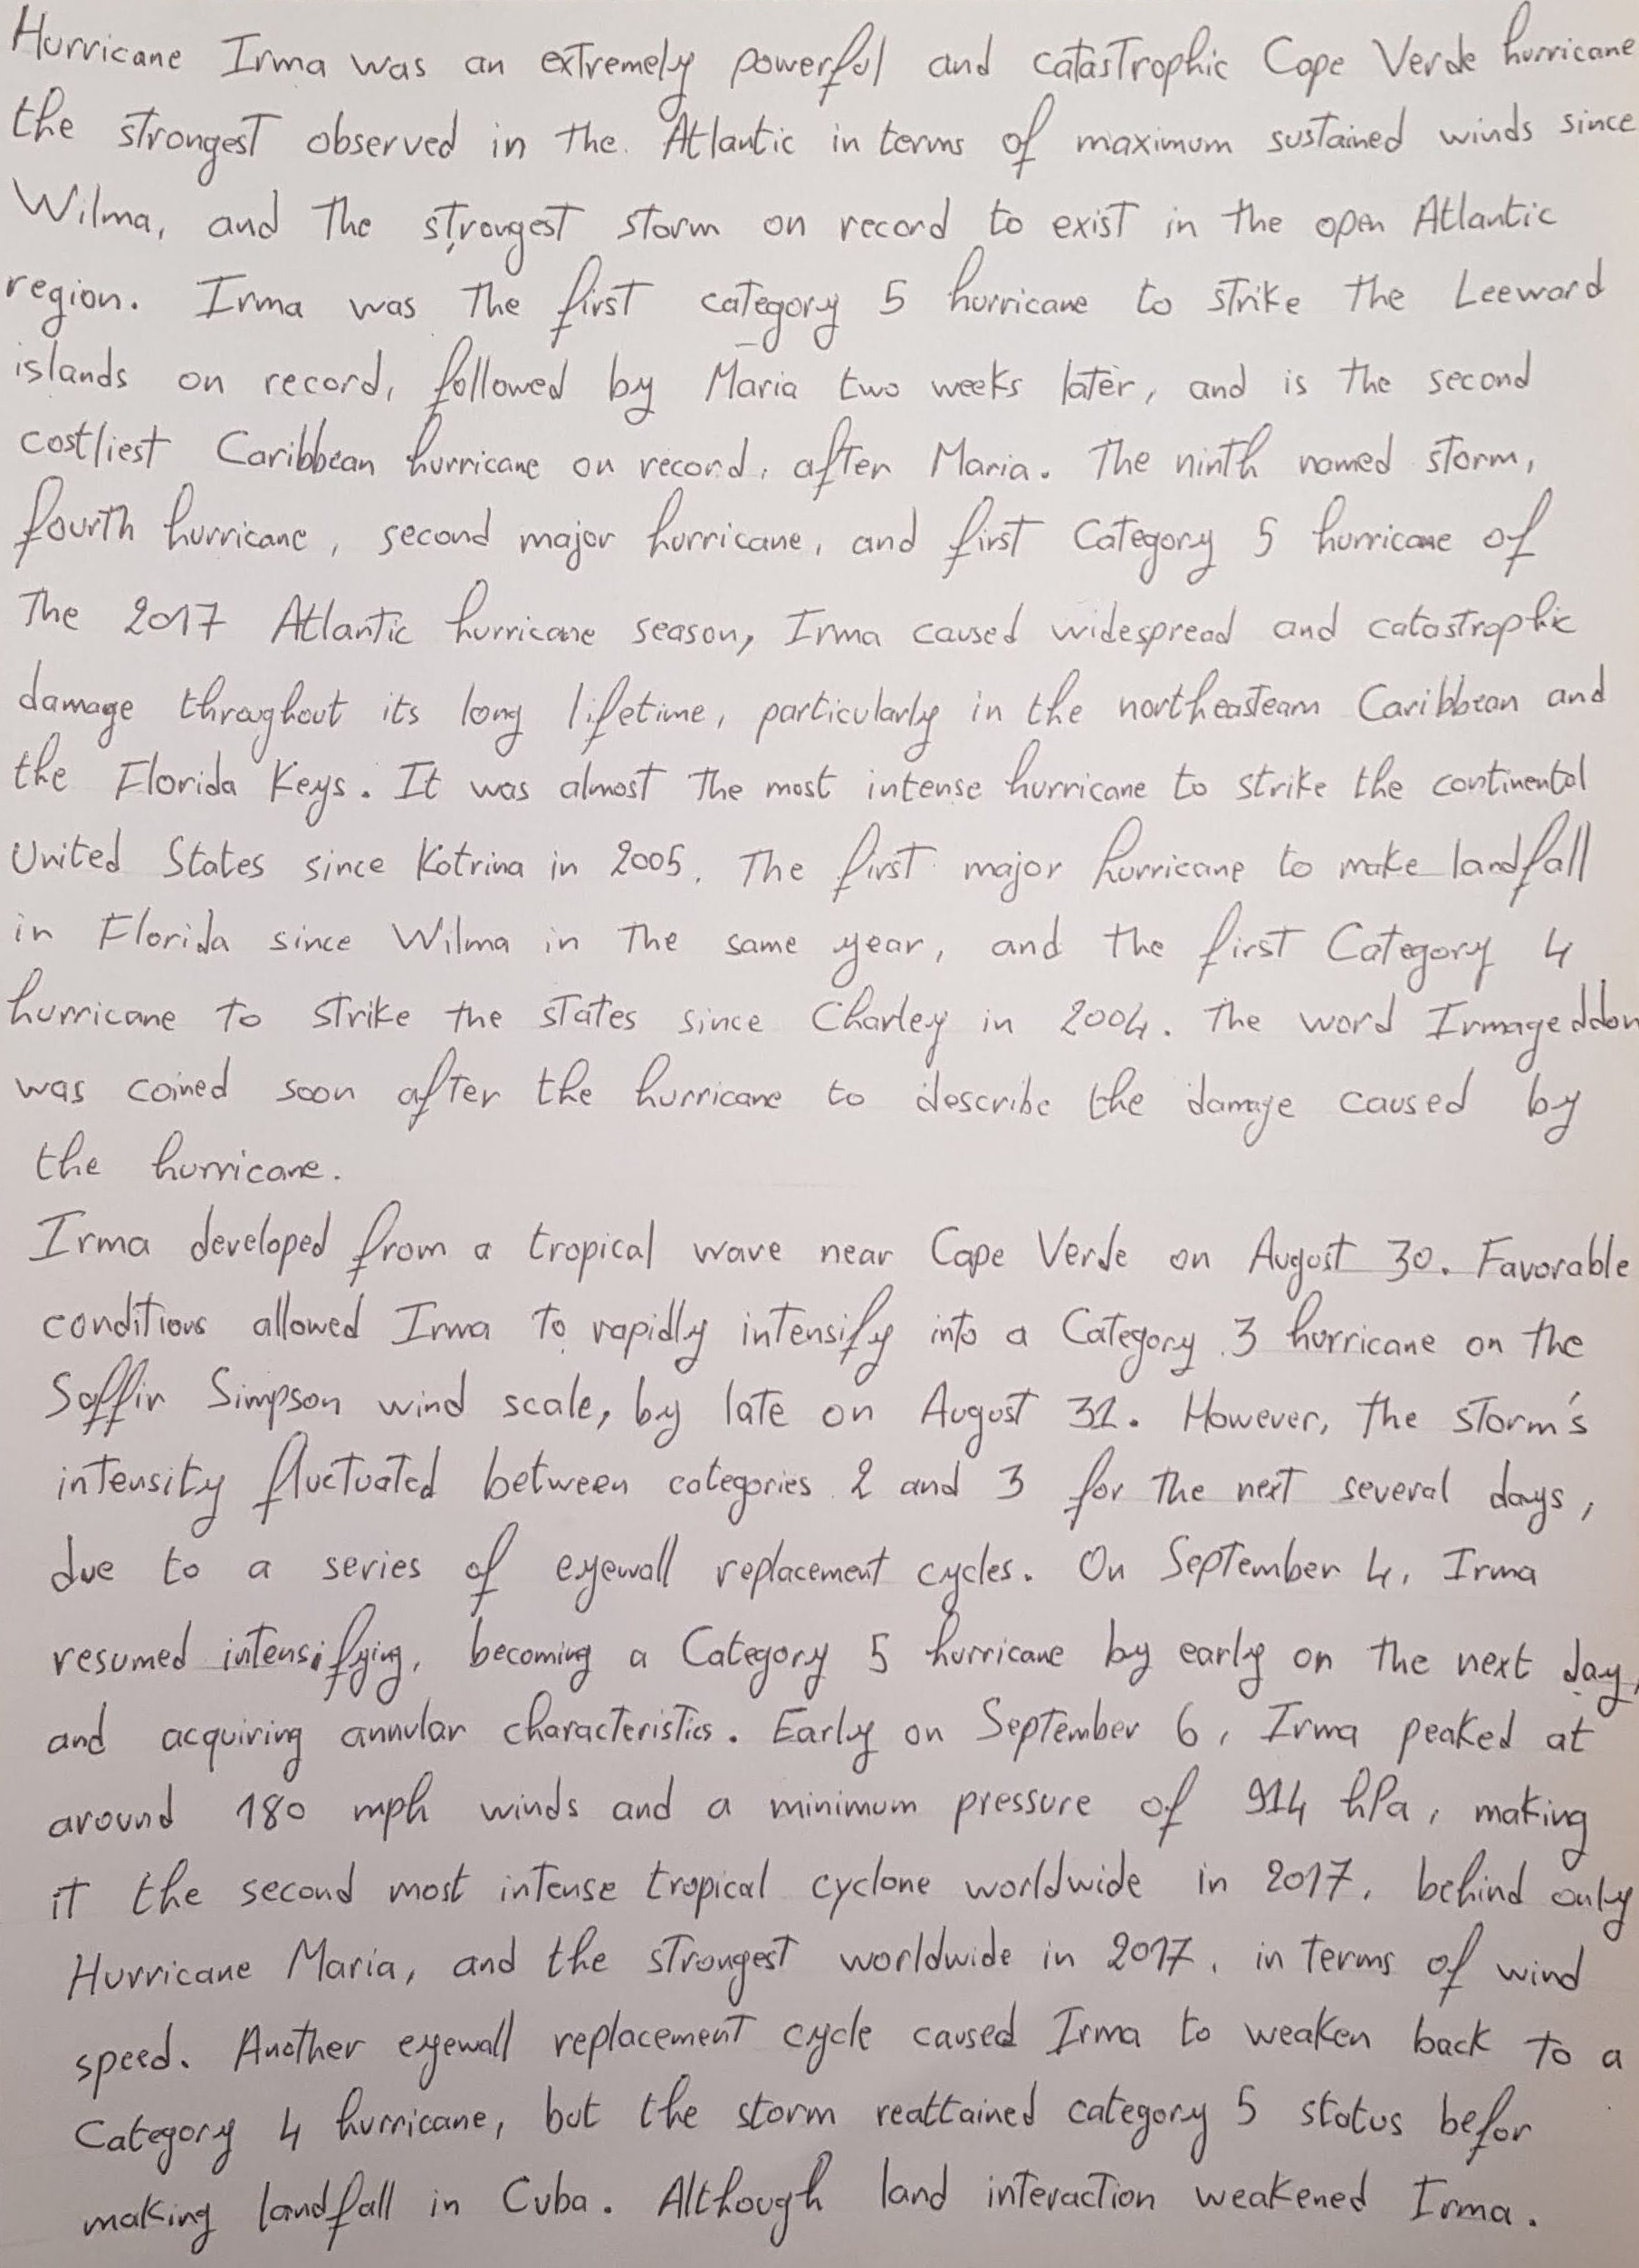 Hurricane Irma was an extremely powerful and catastrophic Cape Verde hurricane
the strongest observed in the. Atlantic in terms of maximum sustained winds since
Wilma, and the strongest storm on record to exist in the open Atlantic
region. Irma was the first category 5 hurricane to strike the Leeward
islands on record, followed by Maria two weeks later, and is the second
costliest Caribbean hurricane on record, after Maria. The ninth named storm,
fourth hurricane, second major hurricane, and first Category 5 hurricane of
The 2017 Atlantic hurricane season, Irma caused widespread and catastrophic
damage throughout its long lifetime, particularly in the northeasteam Caribbean and
the Florida Keys. It was almost the most intense hurricane to strike the continental
United States since Katrina in 2005. The first major hurricane to make landfall
in Florida since Wilma in the same year, and the first Category 4
hurricane to strike the states since Charley in 2004. The word Irmageddon
was coined soon after the hurricane to describe the damage caused by
the hurricane.
Irma developed from a tropical wave near Cape Verde on August 30. Favorable
conditions allowed Irma to rapidly intensify into a Category 3 hurricane on the
Saffir Simpson wind scale, by late on August 31. However, the storm's
intensity fluctuated between categories 2 and 3 for the next several days,
due to a series of eyewall replacement cycles. On September 4, Irma
resumed intensifying, becoming a Category 5 hurricane by early on the next day,
and acquiring annular characteristics. Early on September 6, Irma peaked at
around 180 mph winds and a minimum pressure of 914 hPa, making
it the second most intense tropical cyclone worldwide in 2017, behind only
Hurricane Maria, and the strongest worldwide in 2017, in terms of wind
speed. Another eyewall replacement cycle caused Irma to weaken back to a
Category 4 hurricane, but the storm reattained category 5 status befor
making landfall in Cuba. Although land interaction weakened Irma.